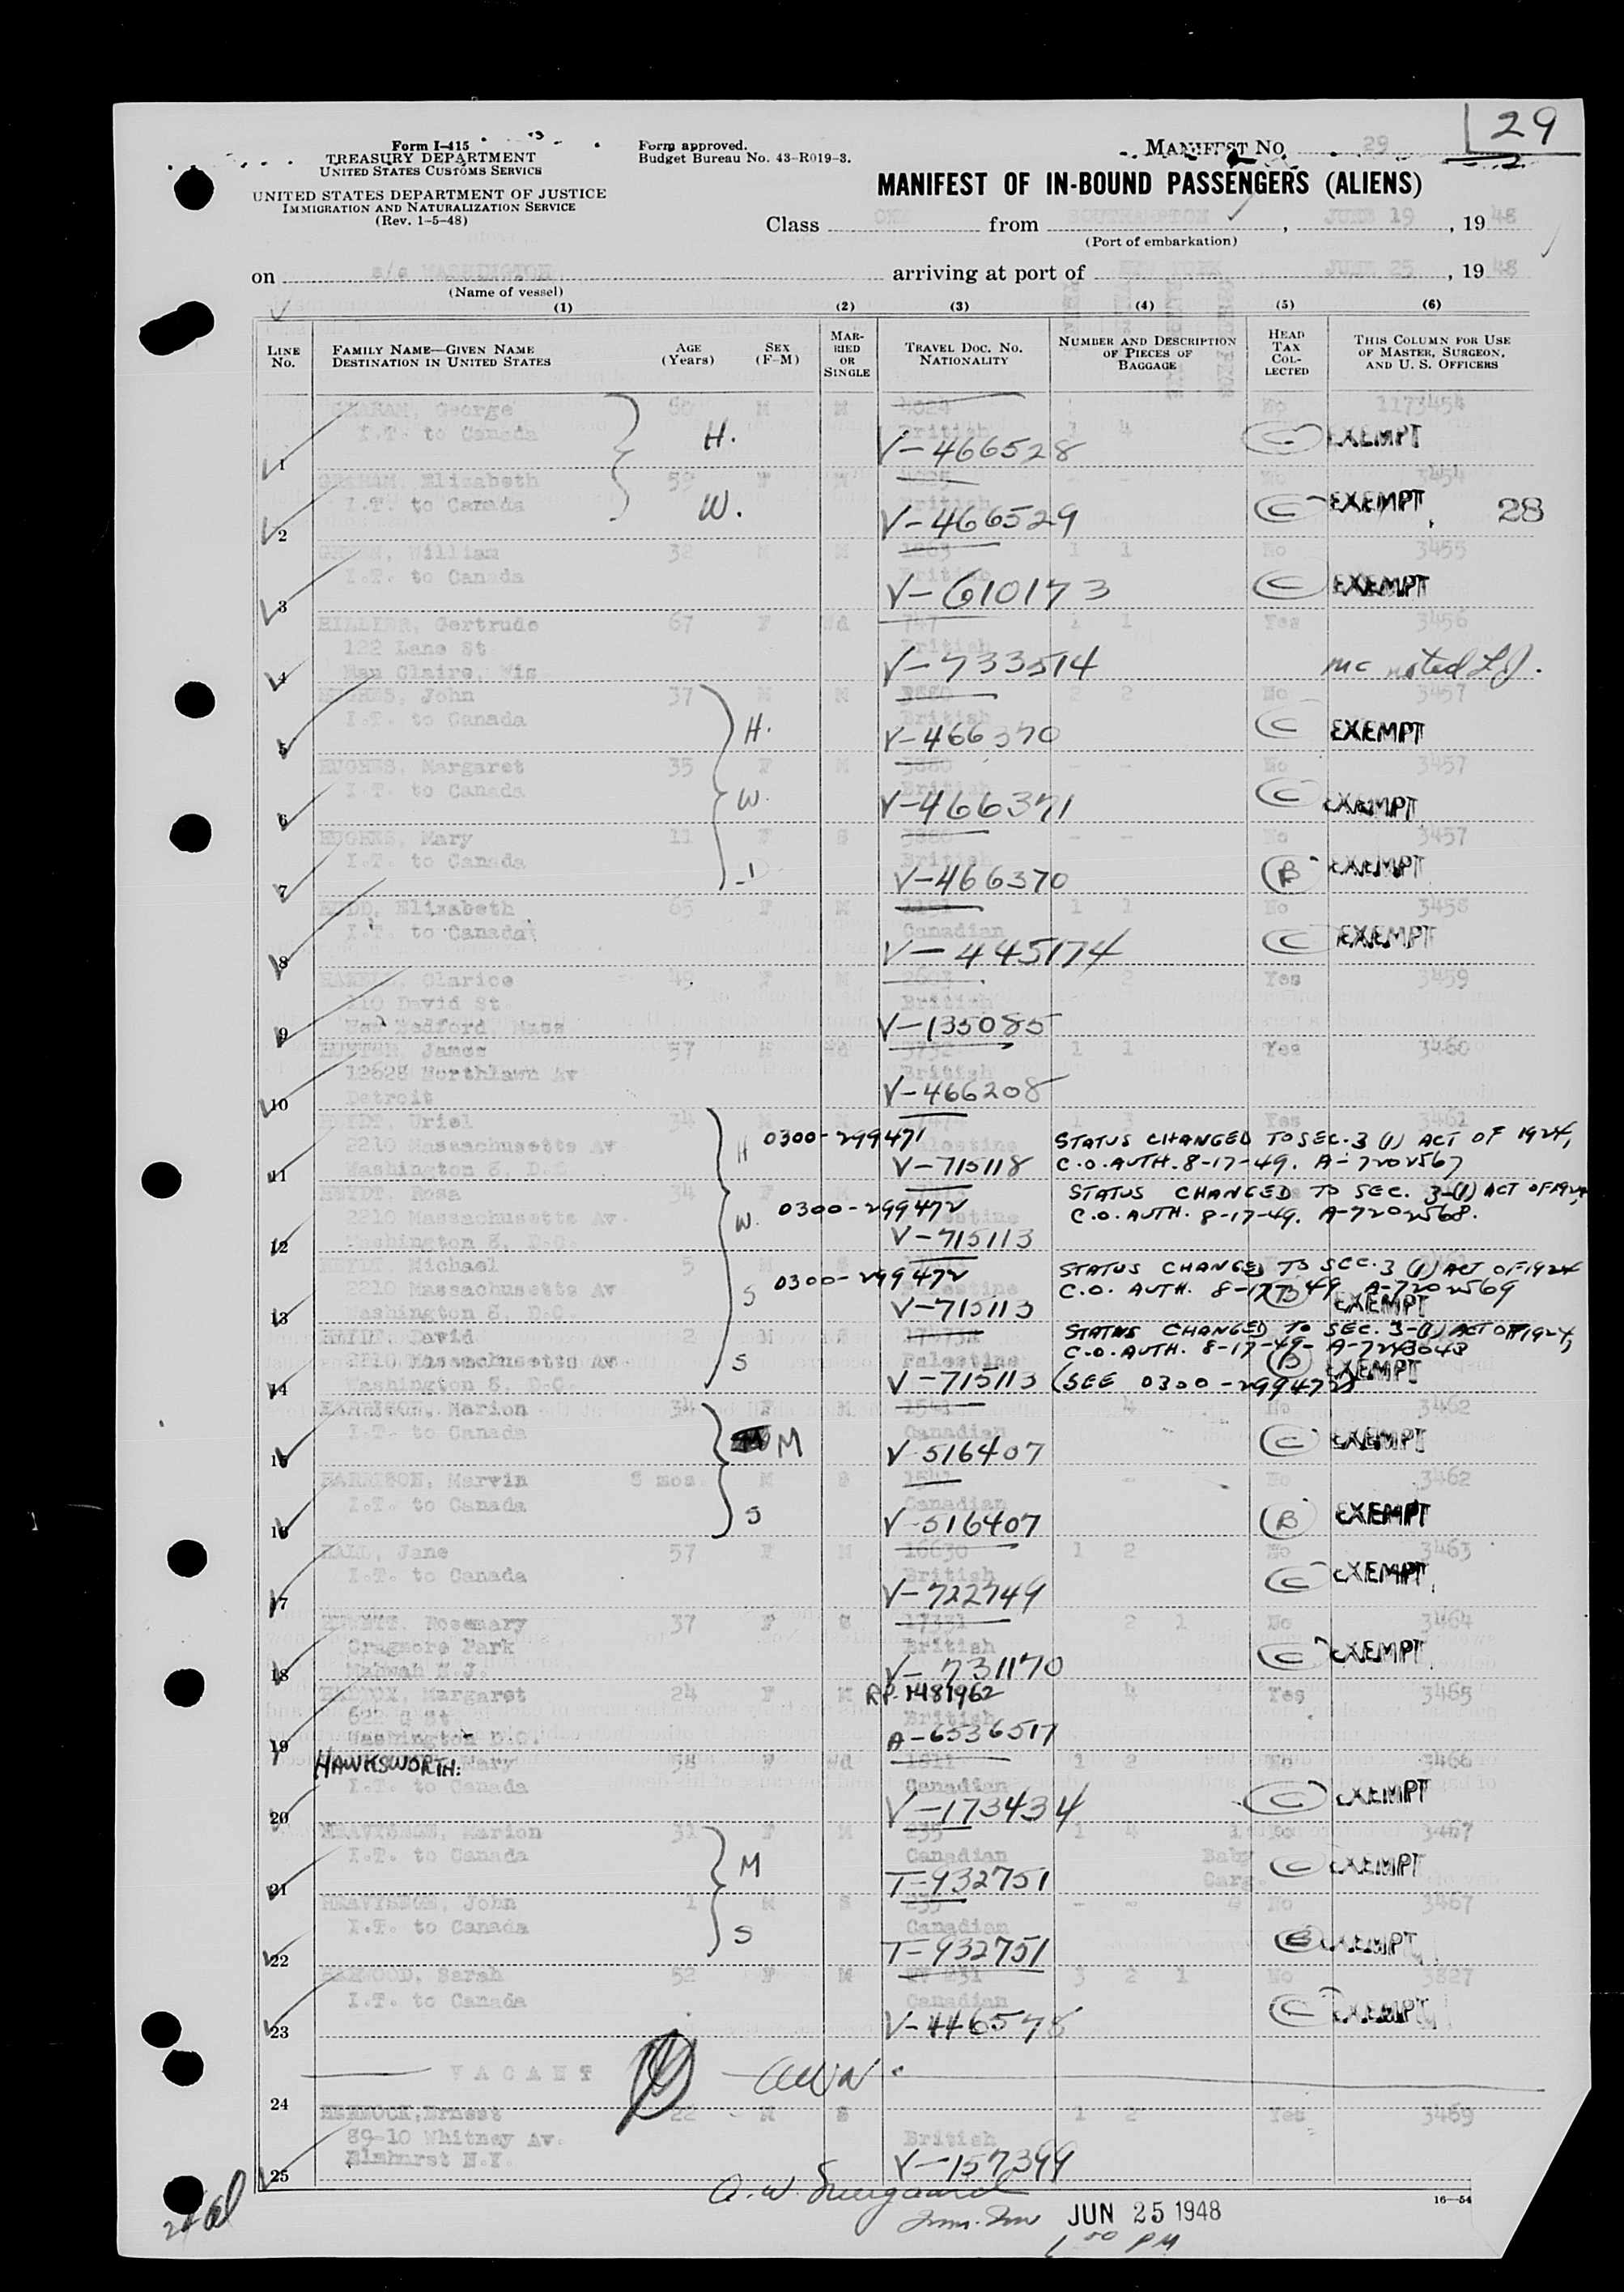 29
Form I-415
TREASURY DEPARTMENT
UNITED STATES CUSTOMS SERVICE
UNITED STATES DEPARTMENT OF JUSTICE
IMMIGRATION AND NATURALIZATION SERVICE
(Rev. 1-5-48)
Form approved.
Budget Bureau No. 43-R019-3.
MANIFEST No. 29
MANIFEST OF IN-BOUND PASSENGERS (ALIENS)
Class ONE from SOUTHAMPTON, JUNE 19, 1948
(Port of embarkation)
on s/s WASHINGTON arriving at port of NEW YORK JUNE 25, 1948
(Name of vessel)
(1) (2) (3) (4) (5) (6)
LINE No. FAMILY NAME—GIVEN NAME DESTINATION IN UNITED STATES AGE (Years) SEX (F-M) MARRIED OR SINGLE TRAVEL DOC. NO. NATIONALITY NUMBER AND DESCRIPTION OF PIECES OF BAGGAGE HEAD TAX COLLECTED THIS COLUMN FOR USE OF MASTER, SURGEON, AND U. S. OFFICERS
GRAHAM, George 60 M M 4024 No 1173454
I.T. to Canada H. British 1 4 C EXEMPT
1 V-466528
GRAHAM, Elizabeth 59 F M - - No 3454
I.T. to Canada W. British C EXEMPT 28
2 V-466529
William 32 M M 1 1 No 3455
I.T. to Canada British C EXEMPT
3 V-610173
Gertrude 67 F Wd 747 1 1 Yes 3456
122 Lane St British
4 Eau Claire, Wis V-733514 mc noted L.J.
HUGHES, John 37 M M 3880 2 2 No 3457
I.T. to Canada H. British C EXEMPT
5 V-466370
HUGHES, Margaret 35 F M 3880 - - No 3457
I.T. to Canada W. British C EXEMPT
6 V-466371
HUGHES, Mary 11 F S 3880 - - No 3457
I.T. to Canada D British B EXEMPT
7 V-466370
Elizabeth 65 F M 1 1 No 3458
I.T. to Canada Canadian C EXEMPT
8 V-445174
Clarice 49 F M 2 Yes 3459
210 David St British
9 New Bedford, Mass V-135085
James 57 M Wd 3732 1 1 Yes 3460
12628 Northlawn Av British
10 Detroit V-466208
HEYDT, Uriel 34 M M 3 Yes 3461
2210 Massachusetts Av H 0300-299471 Palestine STATUS CHANGED TO SEC. 3 (1) ACT OF 1924,
11 Washington 8, D.C. V-715118 C.O. AUTH. 8-17-49. A-7202567
HEYDT, Rosa 34 F M STATUS CHANGED TO SEC. 3-(1) ACT OF 1924
2210 Massachusetts Av. W. 0300-299472 Palestine C.O. AUTH. 8-17-49. A-7202568.
12 Washington 8, D.C. V-715113
HEYDT, Michael 5 M S STATUS CHANGED TO SEC. 3 (1) ACT OF 1924
2210 Massachusetts Av S 0300-299472 Palestine C.O. AUTH. 8-17-49 A-7202569
13 Washington 8, D.C. V-715113 B EXEMPT
HEYDT, David 2 M S STATUS CHANGED TO SEC. 3-(1) ACT OF 1924,
2210 Massachusetts Av S Palestine C.O. AUTH. 8-17-49- A-7243043
14 Washington 8, D.C. V-715113 (SEE 0300-299472) B EXEMPT
HARRISON, Marion 34 F M 1541 4 No 3462
I.T. to Canada M Canadian C EXEMPT
15 V-516407
HARRISON, Marvin 8 mos. M S 1541 - No 3462
I.T. to Canada S Canadian B EXEMPT
16 V-516407
HALL, Jane 57 F M 16630 1 2 No 3463
I.T. to Canada British C EXEMPT
17 V-722749
Rosemary 37 F S 17331 2 1 No 3464
Cragmore Park British C EXEMPT
18 Mahwah N.J. V-731170
Margaret 24 F M RP-1481962 4 Yes 3465
622 G St British
19 Washington D.C. A-6536517
HAWKSWORTH: Mary 58 F Wd 1811 1 2 No 3466
I.T. to Canada Canadian C EXEMPT
20 V-173434
Marion 31 F M 235 1 4 1 No 3467
I.T. to Canada M Canadian Baby C EXEMPT
21 T-932751 Carg.
John 1 M S 235 - - No 3467
I.T. to Canada S Canadian B EXEMPT
22 T-932751
Sarah 52 F M 231 3 2 1 No 3827
I.T. to Canada Canadian C EXEMPT
23 V-446578
VACANT
24
Ernest 22 M S 1 2 Yes 3469
89-10 Whitney Av. British
25 Elmhurst N.Y. V-157399
A. W.
Imm. Ins JUN 25 1948
1 00 PM
16-54